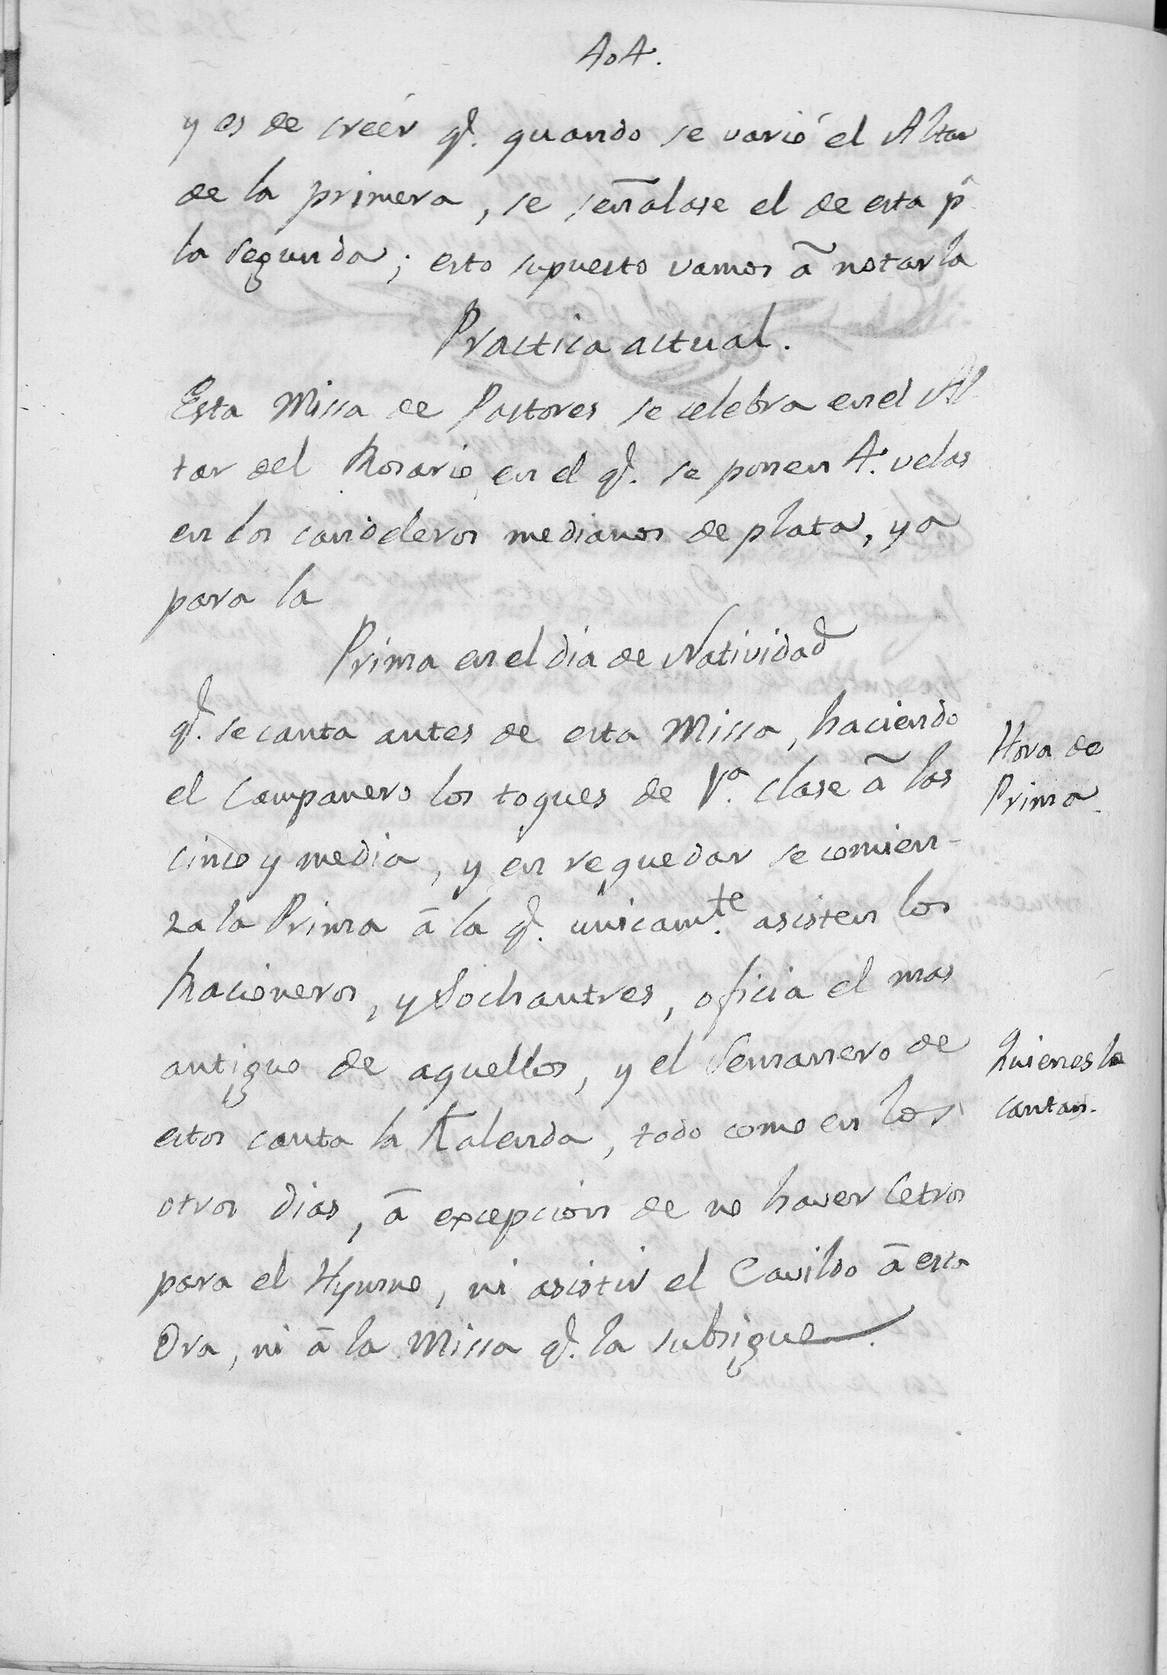 404.
y es de creér q.̃ quando se varió el Altar
de la primera, se señalase el de esta p.ª
la segunda; esto supuesto vamos â notar la
Practica actual.
Esta Missa de Pastores se celebra en el Al
tar del Rosario, en el q.̃ se ponen 4. velas
en los candeleros medianos de plata, ya
para la
Prima en el dia de Natividad
q.̃ se canta antes de esta Missa, haciendo
el Campanero los toques de 1.ª clase â las
cinco y media, y en requedar se comien-
za la Prima â la q.̃ unicam.te asisten los
Racioneros, y Sochantres, oficia el mas
antiguo de aquellos, y el Semanero de
estos canta la Kalenda, todo como en los
otros dias, â excepcion de no haver Cetros
para el Hymno, ni asistir el Cavildo â esta
Ora, ni â la Missa q.̃ la subsigue.
Hora de
Prima
Quienes la
cantan.